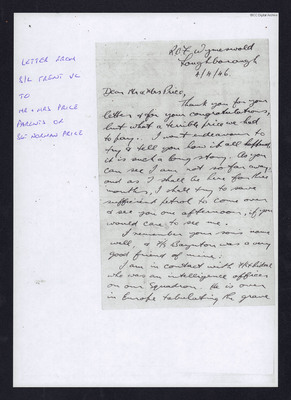 LETTER FROM
BILL TRENT VC
TO
MR + MRS PRICE
PARENTS OF
SGT NORMAN PRICE
R.A.F. Wymeswold
Loughborough
4/4/46.
Dear Mr & Mrs Price,
Thank you for your
letter & for your congratulations,
but what a terrible price we had
to pay. I won't endeavour to
try & tell you how it all happened,
it is such a long story. As you
can see I am not so far away
and as I shall be here for three
months, I shall try to save
sufficient petrol to come over
& see you one afternoon, if you
would care to see me.
I remember your son's name
well, a
was a very
good friend of mine.
I am in contact with
who was an intelligence officer
on our Squadron. He is over
in Europe tabulating the grave